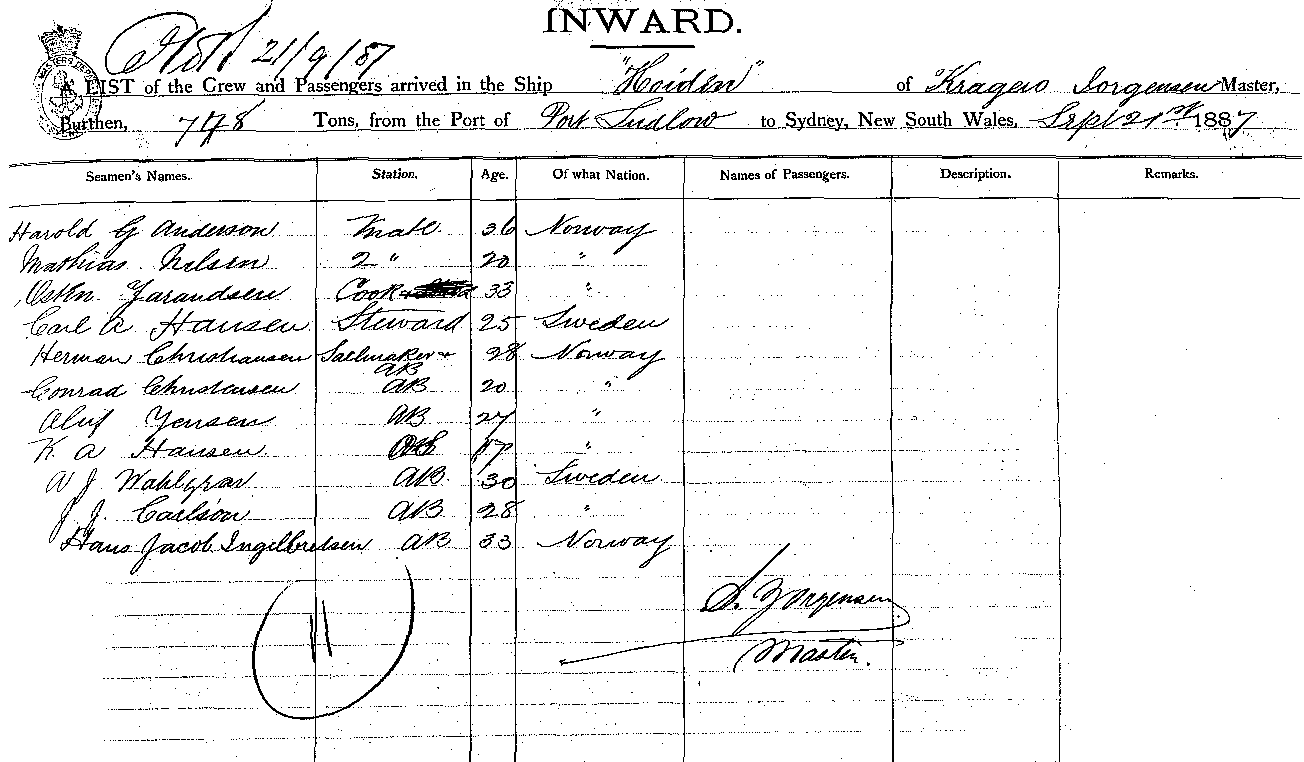 INWARD.
21/9/87
A LIST of the Crew and Passengers arrived in the Ship "Hoiden" of Kragero Jorgensen Master,
Burthen, 748 Tons, from the Port of Port Ludlow to Sydney, New South Wales, Sept 21st 1887
Seamen's Names. Station. Age. Of what Nation. Names of Passengers. Description. Remarks.
Harold G Anderson Mate. 36 Norway
Mathias Nilsen 2 " 20 "
Yarandsen Cook 33 "
Carl A Hansen Steward 25 Sweden
Herman Christiansen Sailmaker + 28 Norway
AB
Conrad Christensen AB 20 "
Oluf Jensen AB 27 "
K A Hansen 17 "
A J Wahlgrav AB 30 Sweden
J J. Carlson AB 28 "
Hans Jacob Ingelbretsen AB 33 Norway
11
S. Jorgensen
Master.